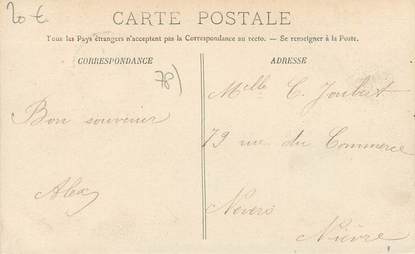 20 €
CARTE POSTALE
Tous les Pays étrangers n'acceptent pas la Correspondance au recto. — Se renseigner à la Poste.
CORRESPONDANCE
78)
ADRESSE
Bon souvenir
Alex
Melle C. Joubert
79 rue du Commerce
Nevers
Nièvre